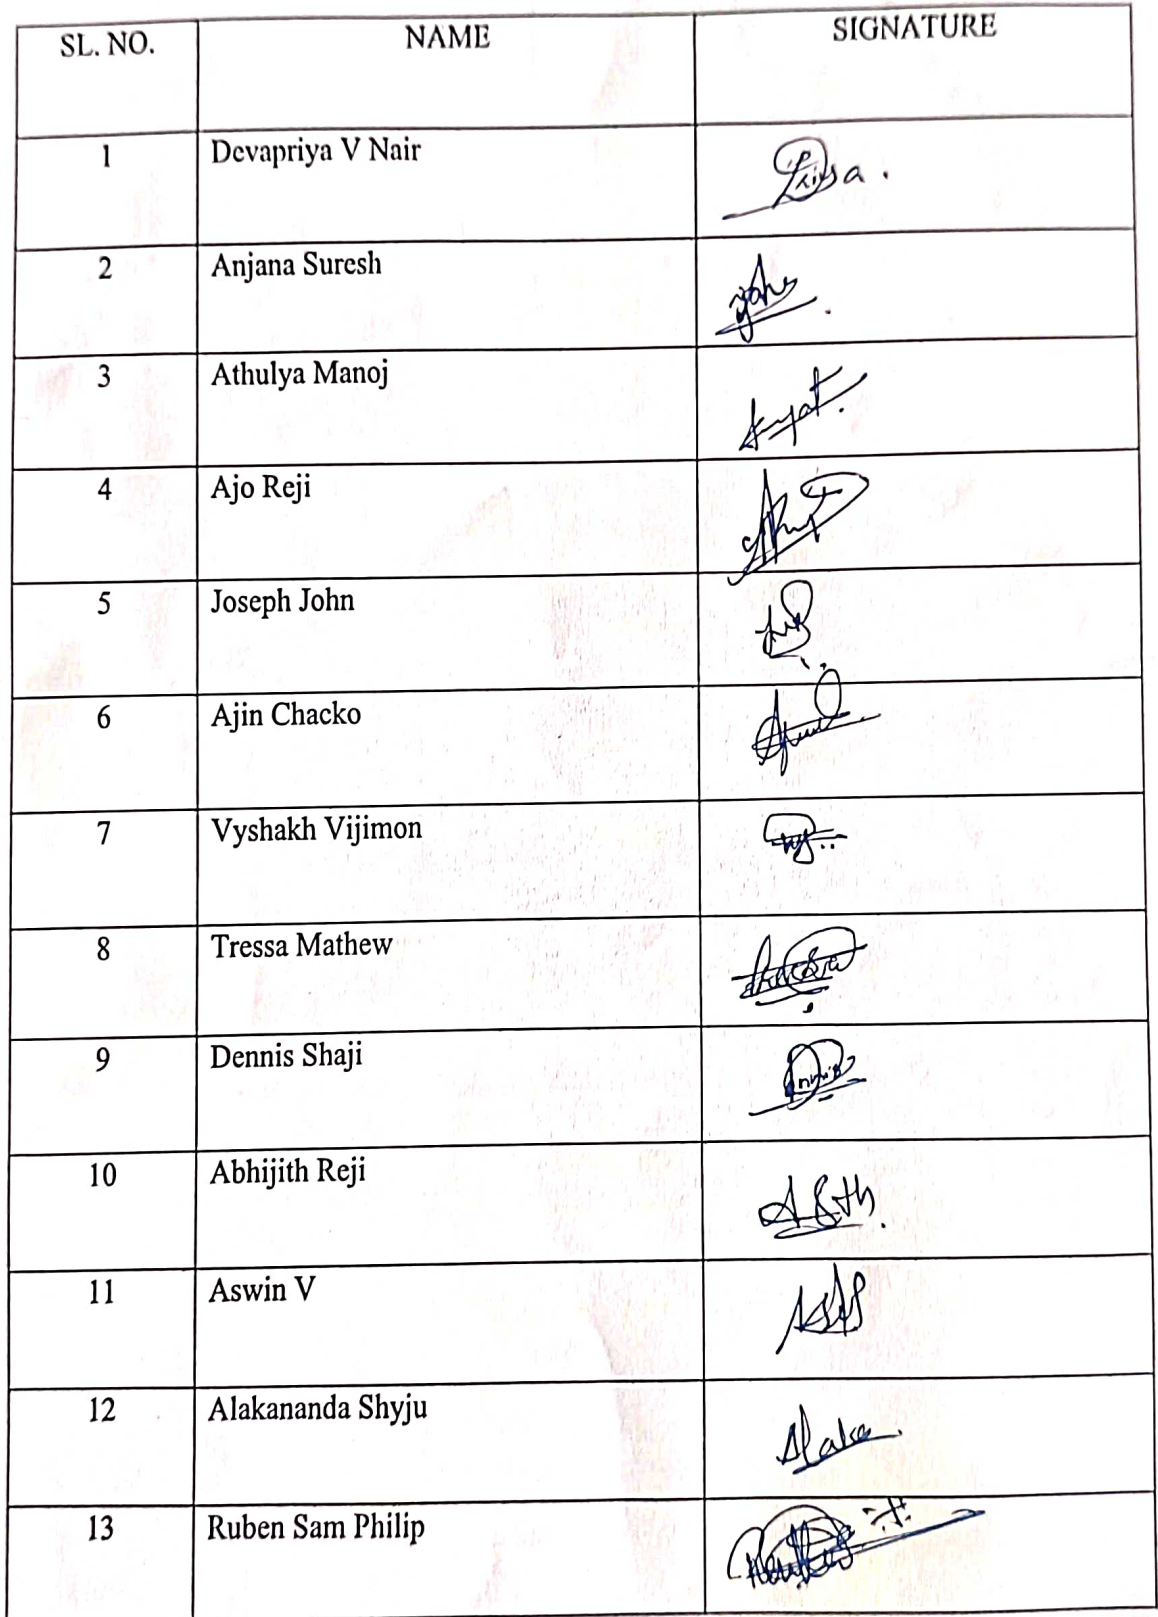 SL. NO. NAME SIGNATURE
1 Devapriya V Nair
2 Anjana Suresh
3 Athulya Manoj
4 Ajo Reji
5 Joseph John
6 Ajin Chacko
7 Vyshakh Vijimon
8 Tressa Mathew
9 Dennis Shaji
10 Abhijith Reji
11 Aswin V
12 Alakananda Shyju
13 Ruben Sam Philip